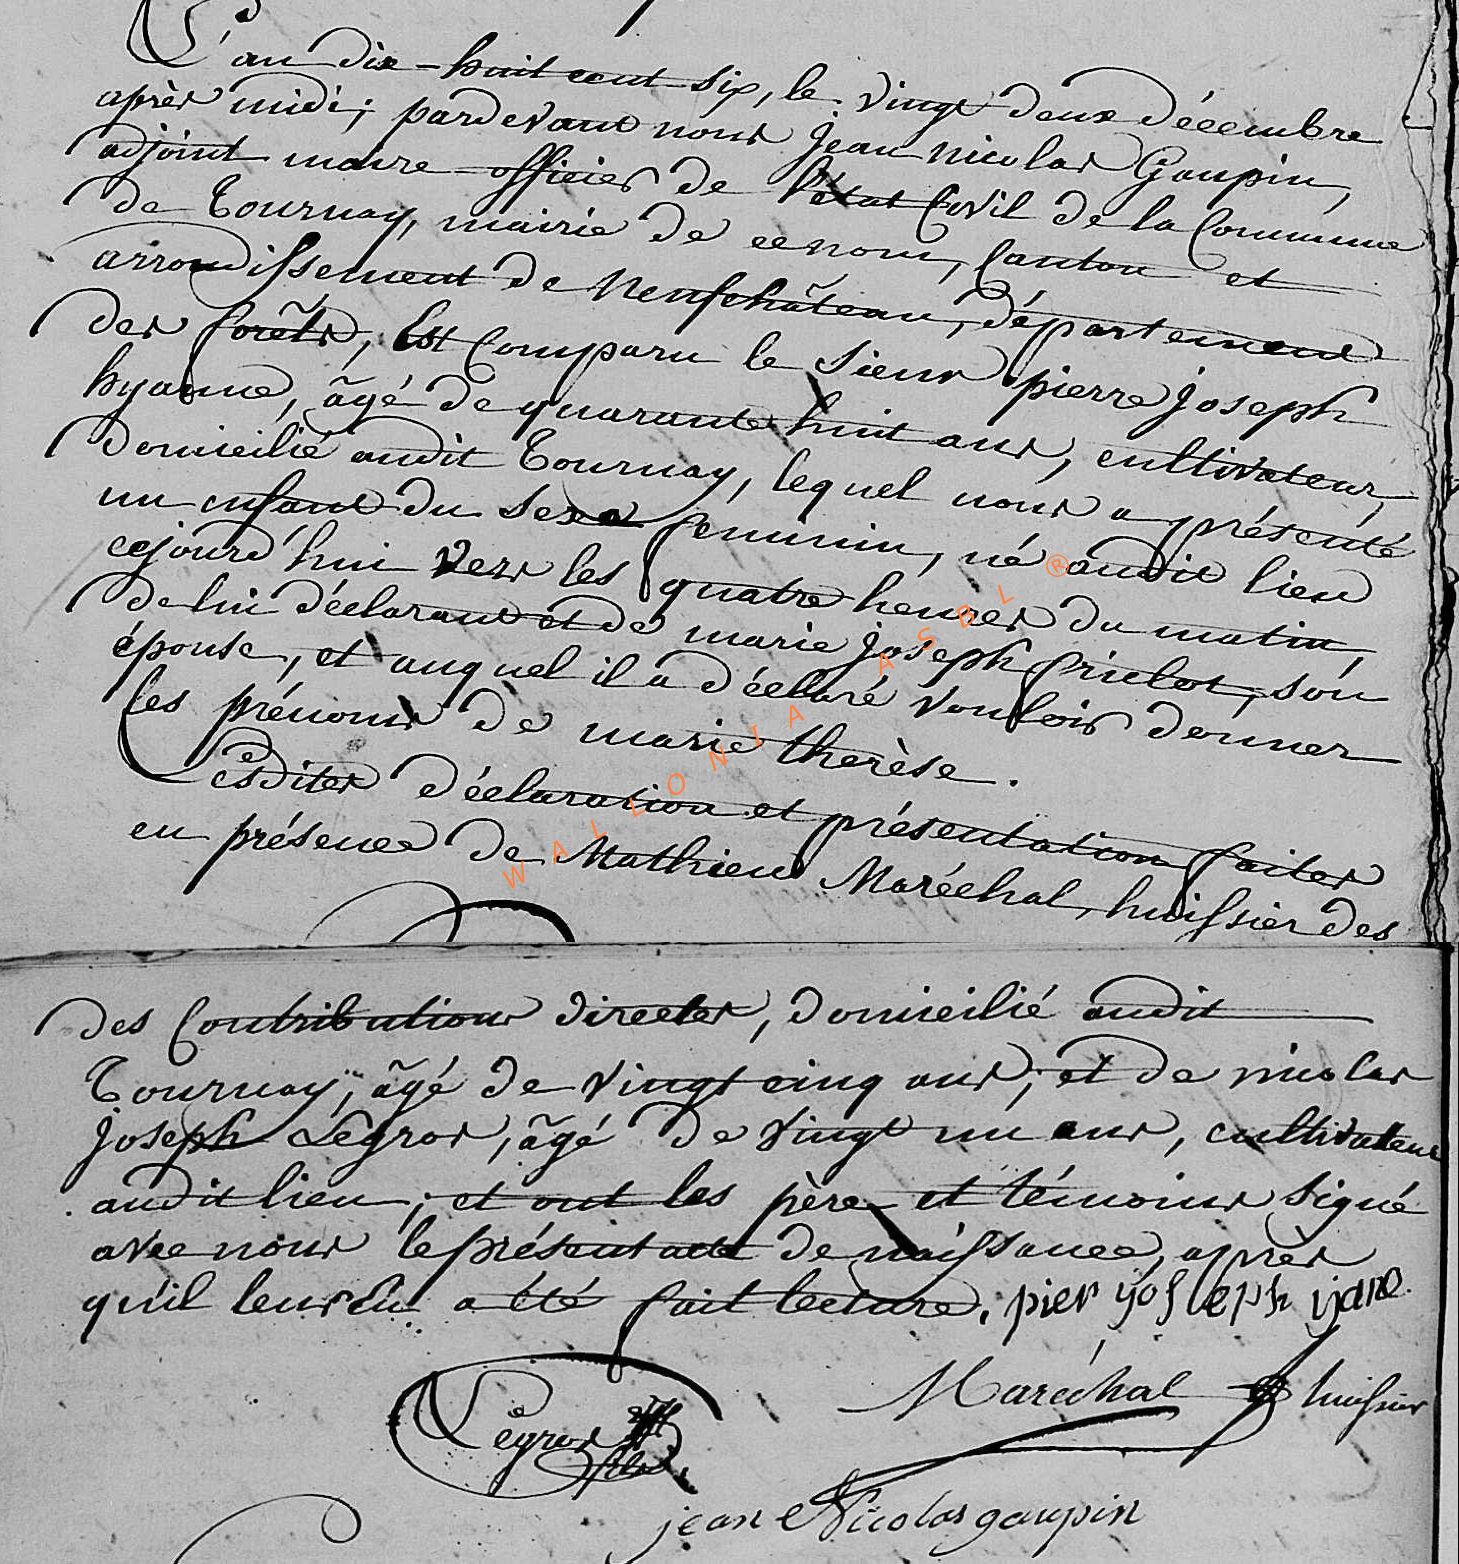 L'an dix-huit cent six, le vingt deux décembre
après midi; pardevant nous jean nicolas Goupin,
adjoint maire officier de l'état Civil de la Commune
de Tournay, mairie de ce nom, Canton et
arrondissement de Neufchâteau, département
des forêts, Est Comparu le sieur pierre joseph
hyanne, âgé de quarante huit ans, cultivateur,
domicilié audit Tournay, lequel nous a présenté
un enfant du sexe féminin, né audit lieu
cejourd'hui vers les quatre heures du matin,
de lui déclarant et de marie joseph son
épouse, et auquel il a déclaré vouloir donner
les prénoms de marie thérèse.
Cesdites déclaration et présentation faites
en présence de Mathieu Maréchal, huissier des
des Contributions directes, domicilié audit
Tournay, âgé de vingt cinq ans; et de nicolas
joseph Legros, âgé de vingt un ans, cultivateur
audit lieu; et ont les père et témoins signé
avec nous le présent acte de naissance, après
qu'il leur en a été fait lecture. pier yosseph ijane.
Maréchal huissier
Legros
jean Nicolas goupin
WALLONIA ASBL ®